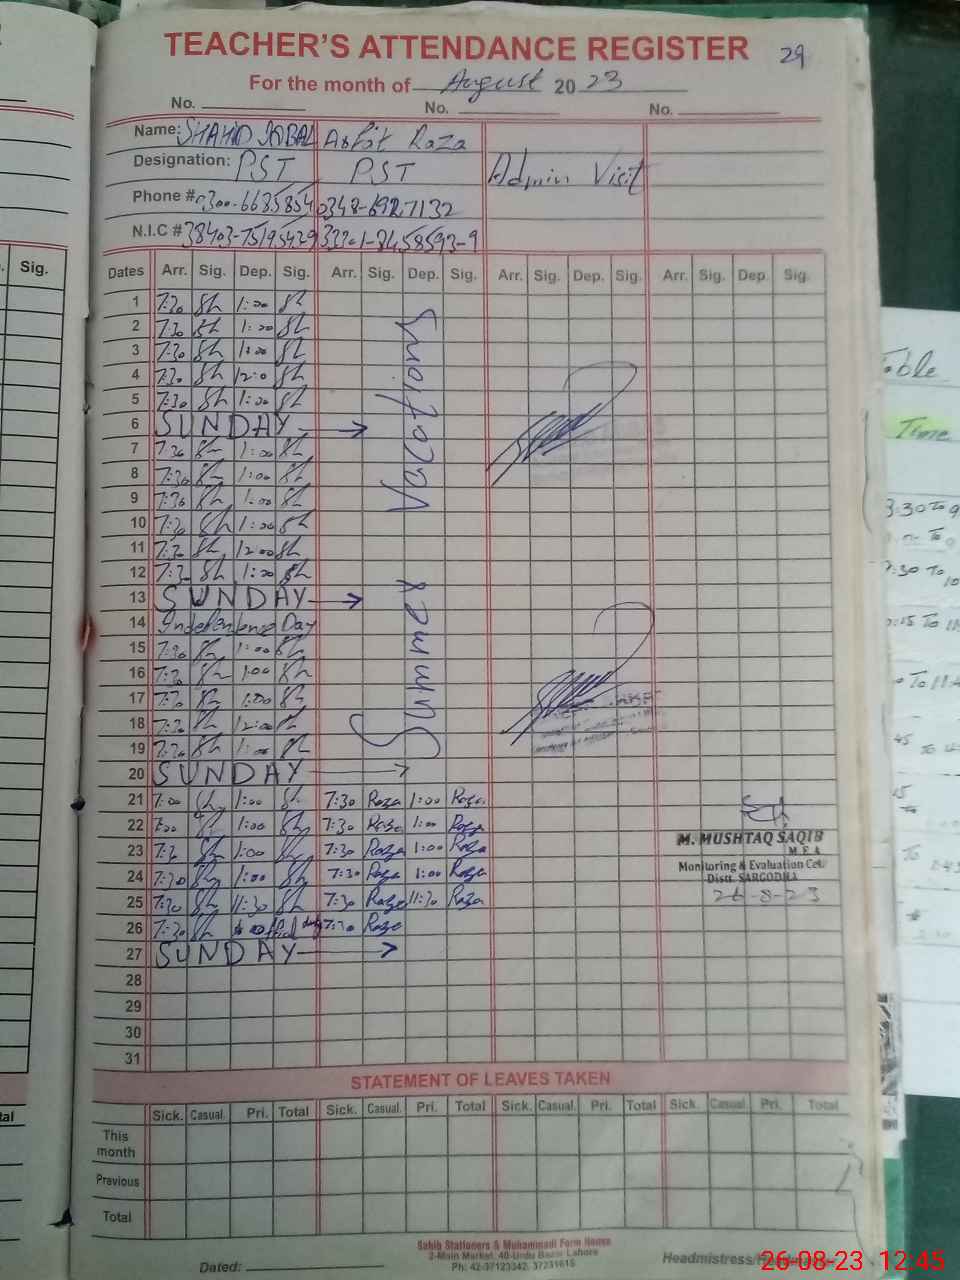 TEACHER'S ATTENDANCE REGISTER 29
For the month of August 2023
No. No. No.
Name: SHAHID IQBAL Asfat Raza
Designation: PST PST Admin Visit
Phone # 0300-6685854 0348-6927132
N.I.C # 38403-75195429 33201-8458593-9
Dates Arr. Sig. Dep. Sig. Arr. Sig. Dep. Sig. Arr. Sig. Dep. Sig. Arr. Sig. Dep. Sig.
Summer Vacations
1 7:30 Sh 1:00 Sh
2 7:30 Sh 1:00 Sh
3 7:30 Sh 1:00 Sh
4 7:30 Sh 12:0 Sh
5 7:30 Sh 1:00 Sh
6 SUNDAY
7 7:30 Sh 1:00 Sh
8 7:30 Sh 1:00 Sh
9 7:30 Sh 1:00 Sh
10 7:30 Sh 1:00 Sh
11 7:30 Sh 12:00 Sh
12 7:30 Sh 1:00 Sh
13 SUNDAY
14 Independence Day
15 7:30 Sh 1:00 Sh
16 7:30 Sh 1:00 Sh
17 7:30 Sh 1:00 Sh
18 7:30 Sh 12:00 Sh
19 7:30 Sh 1:00 Sh
20 SUNDAY
21 7:00 Sh 1:00 Sh 7:30 Raza 1:00 Raza
22 7:00 Sh 1:00 Sh 7:30 Raza 1:00 Raza
23 7:30 Sh 1:00 Sh 7:30 Raza 1:00 Raza
M. MUSHTAQ SAQIB
M.E.A
24 7:30 Sh 1:00 Sh 7:30 Raza 1:00 Raza
Monitoring & Evaluation Cell
Distt. SARGODHA
25 7:30 Sh 11:30 Sh 7:30 Raza 11:30 Raza
26-8-23
26 7:30 Sh duty 7:30 Raza
27 SUNDAY
28
29
30
31
STATEMENT OF LEAVES TAKEN
Sick. Casual. Pri. Total Sick. Casual. Pri. Total Sick. Casual. Pri. Total Sick. Casual. Pri. Total
This month
Previous
Total
Sahib Stationers & Muhammadi Form House
2-Main Market, 40-Urdu Bazar Lahore
Ph: 42-37123342, 37231615
Dated: Headmistress/Headmaster
26-08-23 12:45
Sig.
Table
Time